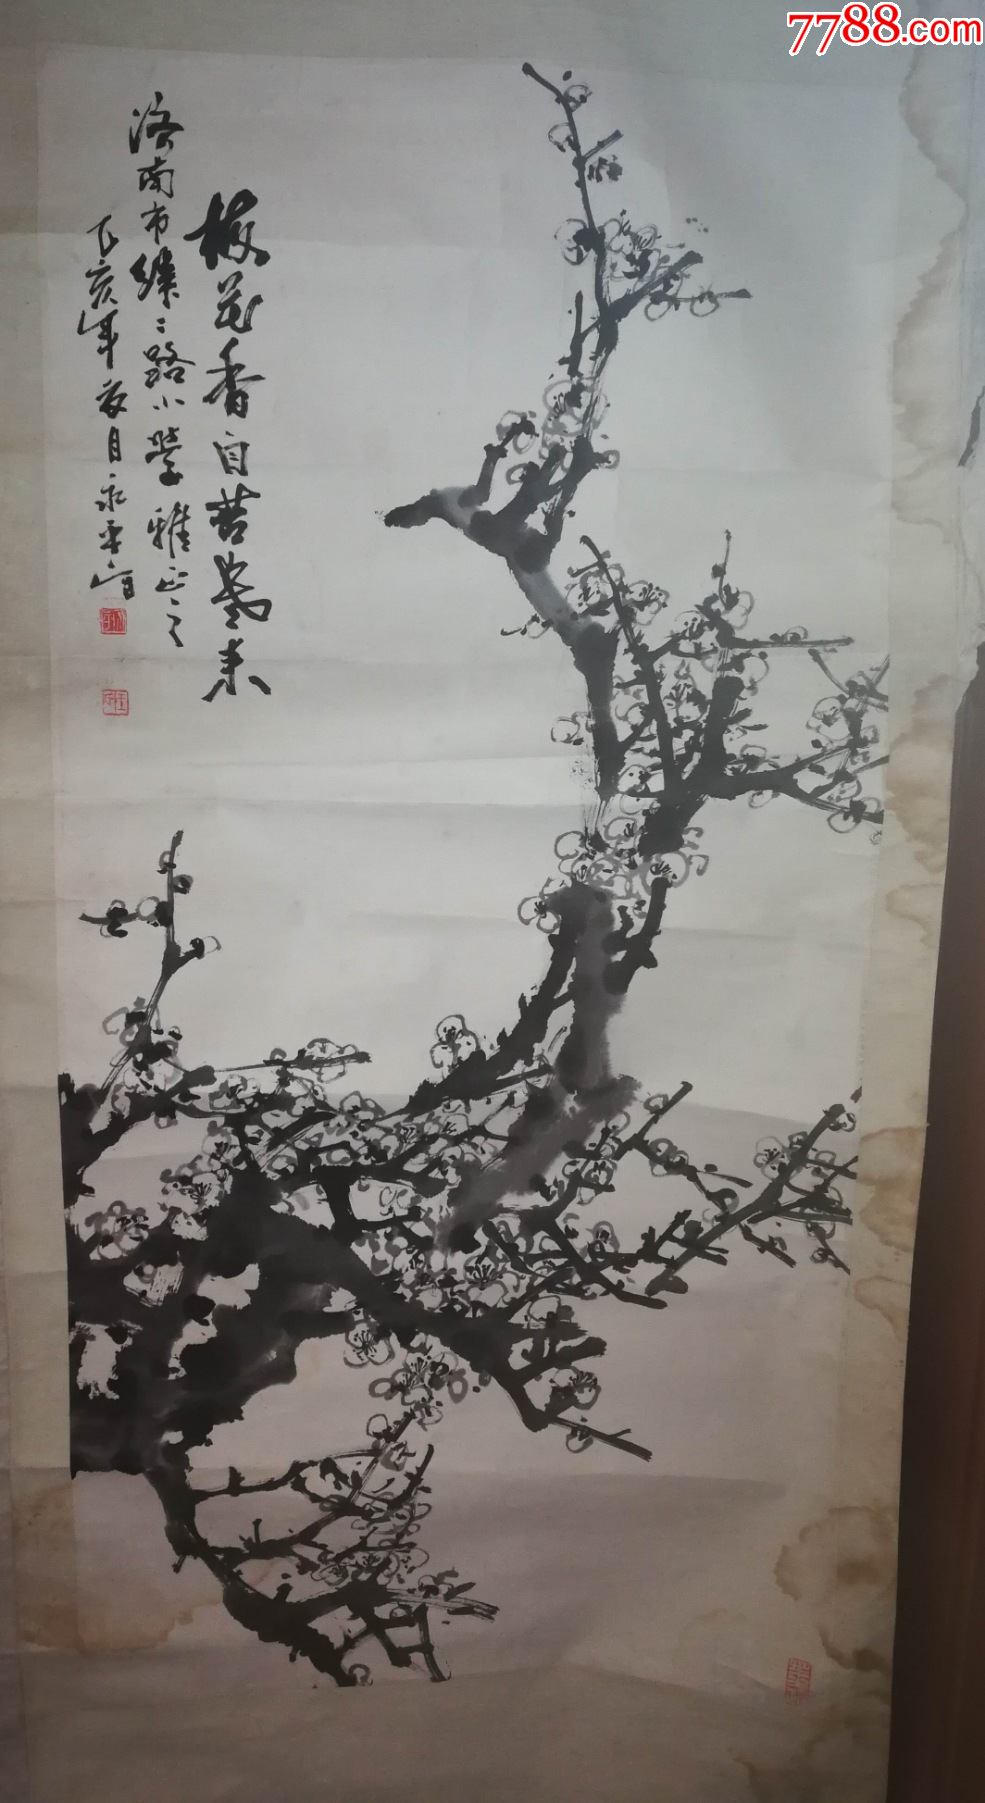 7788.com
梅花香自苦寒来
济南市纬二路小学雅正之
乙亥年夏月永平写